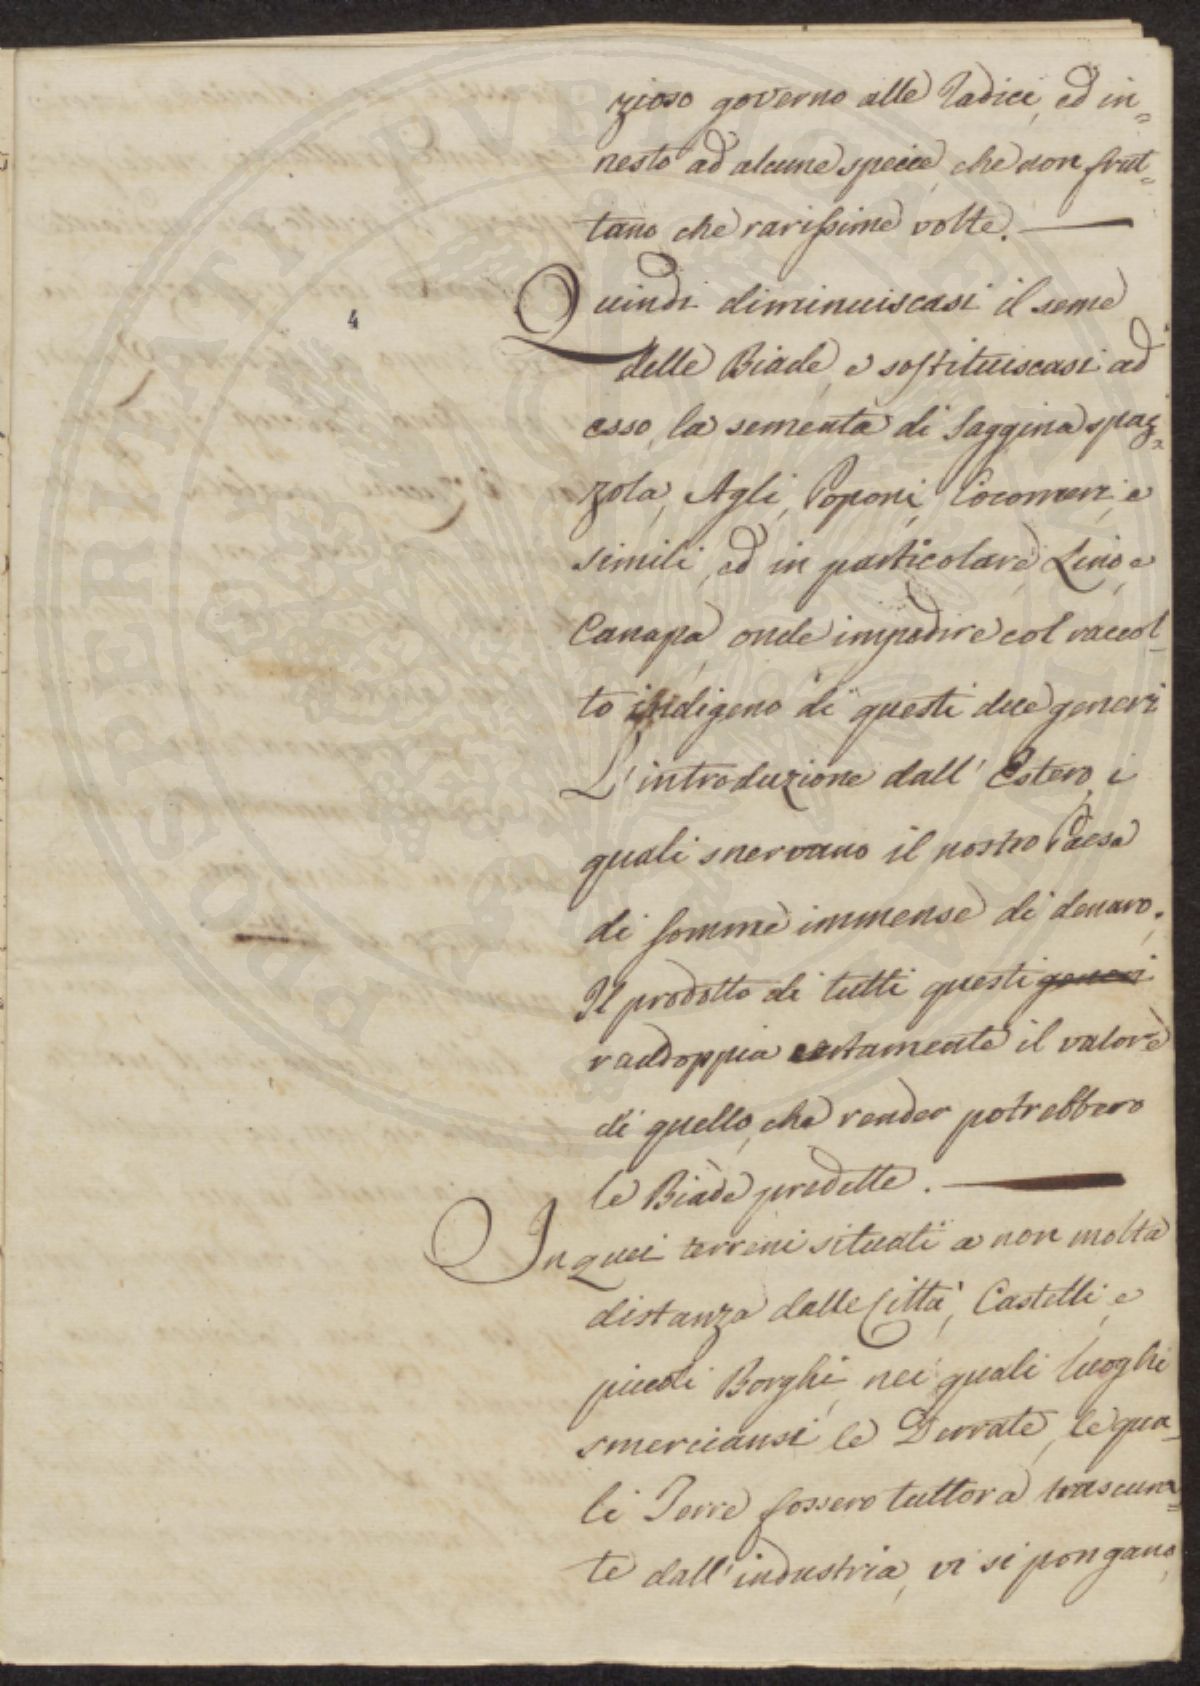 zioso governo alle Radici, ed in=
nesto ad alcune specie, che non frut=
tano che rarissime volte. —
4
Quindi diminuiscasi il seme
delle Biade, e sostituiscasi ad
esso, la sementa di Saggina spaz=
zola, Agli, Poponi, Cocomeri, e
simili, ed in particolare Lino, e
Canapa, onde impedire col raccol=
to indigeno di questi due generi
L'introduzione dall' Estero, i
quali snervano il nostro Paese
di somme immense di denaro.
Il prodotto di tutti questi generi
raddoppia certamente il valore
di quello, che render potrebbero
le Biade predette. —
In quei terreni situati a non molta
distanza dalle Città, Castelli, e
piccoli Borghi, nei quali luoghi
smerciansi le Derrate, le qua=
li Terre fossero tuttora trascura=
te dall'industria, vi si pongano,